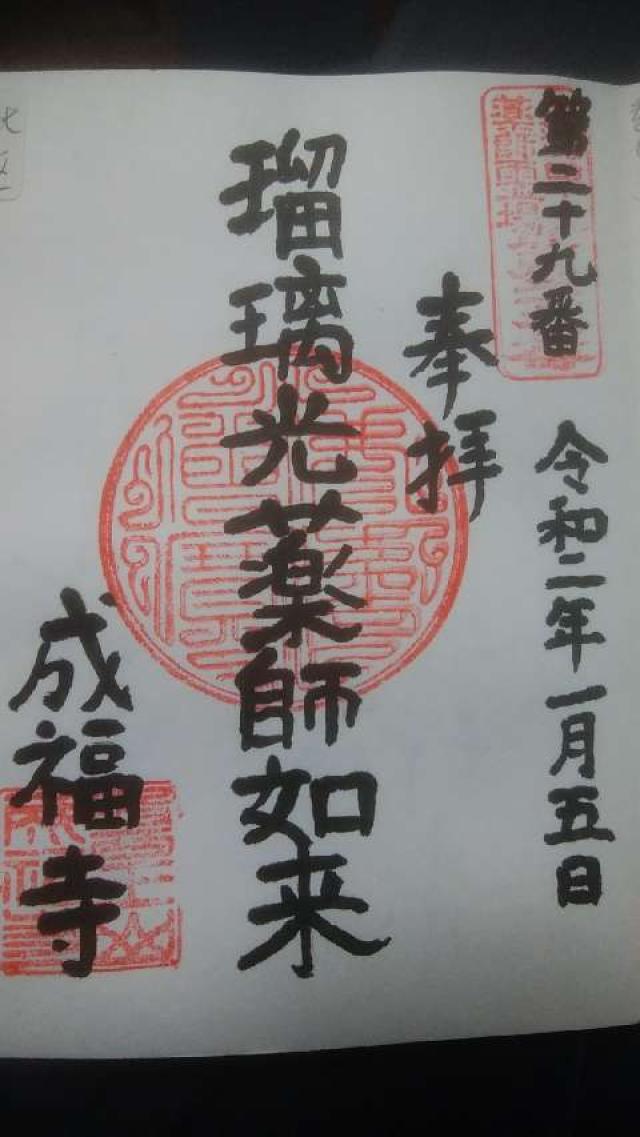 第二十九番
令和二年一月五日
奉拝
瑠璃光薬師如来
成福寺